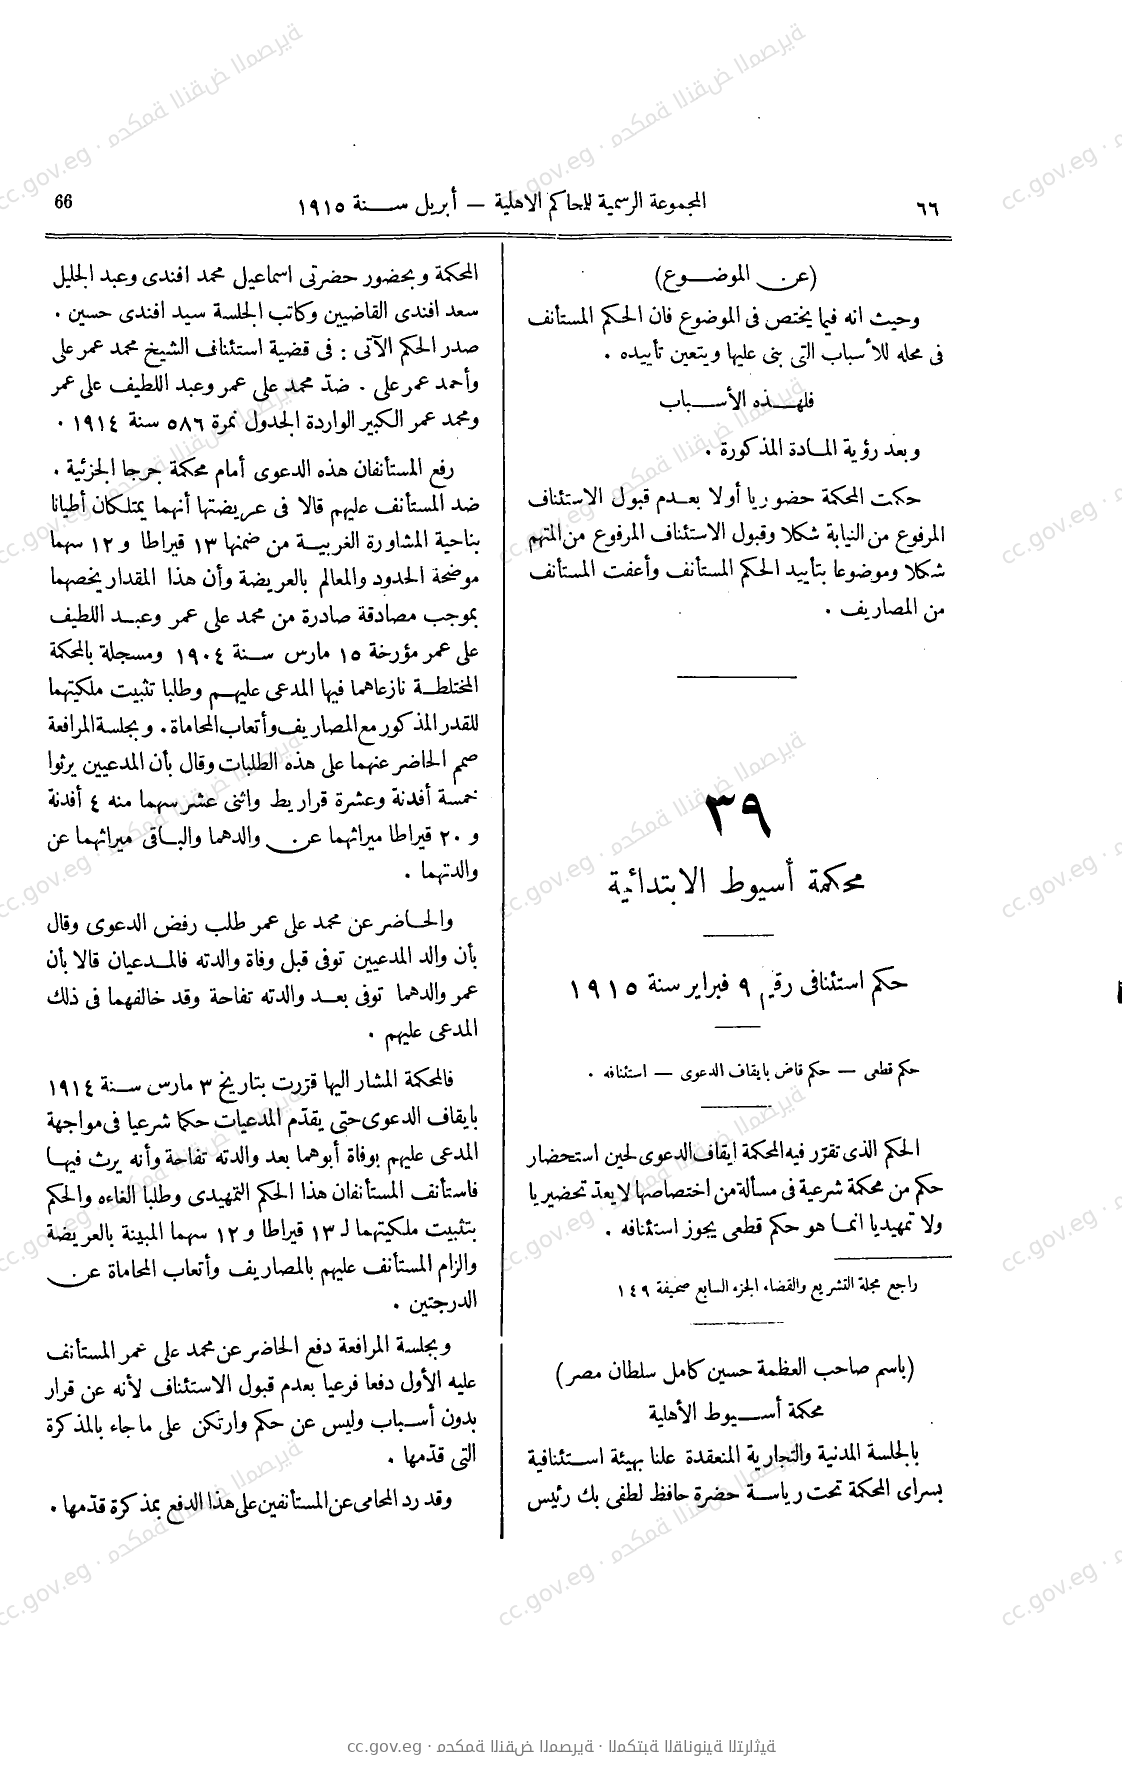 ٦٦
المجموعة الرسمية للمحاكم الاهلية — أبريل سنة ١٩١٥
66
(عن الموضوع)
وحيث انه فيما يختص فى الموضوع فان الحكم المستأنف
فى محله للأسباب التى بنى عليها ويتعين تأييده .
فلهذه الأسباب
وبعد رؤية المادة المذكورة .
حكمت المحكمة حضوريا أولا بعدم قبول الاستئناف
المرفوع من النيابة شكلا وقبول الاستئناف المرفوع من المتهم
شكلا وموضوعا بتأييد الحكم المستأنف وأعفت المستأنف
من المصاريف .
٣٩
محكمة أسيوط الابتدائية
حكم استئنافى رقيم ٩ فبراير سنة ١٩١٥
حكم قطعى — حكم قاض بايقاف الدعوى — استئنافه .
الحكم الذى تقرّر فيه المحكمة إيقاف الدعوى لحين استحضار
حكم من محكمة شرعية فى مسألة من اختصاصها لا يعدّ تحضيريا
ولا تمهيديا انما هو حكم قطعى يجوز استئنافه .
راجع مجلة التشريع والقضاء الجزء السابع صحيفة ١٤٩
(باسم صاحب العظمة حسين كامل سلطان مصر)
محكمة أسيوط الأهلية
بالجلسة المدنية والتجارية المنعقدة علنا بهيئة استئنافية
بسراى المحكمة تحت رياسة حضرة حافظ لطفى بك رئيس
المحكمة وبحضور حضرتى اسماعيل محمد افندى وعبد الجليل
سعد افندى القاضيين وكاتب الجلسة سيد افندى حسين .
صدر الحكم الآتى : فى قضية استئناف الشيخ محمد عمر على
وأحمد عمر على . ضدّ محمد على عمر وعبد اللطيف على عمر
ومحمد عمر الكبير الواردة الجدول نمرة ٥٨٦ سنة ١٩١٤ .
رفع المستأنفان هذه الدعوى أمام محكمة جرجا الجزئية .
ضد المستأنف عليهم قالا فى عريضتها أنهما يمتلكان أطيانا
بناحية المشاورة الغربية من ضمنها ١٣ قيراطا و ١٢ سهما
موضحة الحدود والمعالم بالعريضة وأن هذا المقدار يخصهما
بموجب مصادقة صادرة من محمد على عمر وعبد اللطيف
على عمر مؤرخة ١٥ مارس سنة ١٩٠٤ ومسجلة بالمحكمة
المختلطة نازعاهما فيها المدعى عليهم وطلبا تثبيت ملكيتهما
للقدر المذكور مع المصاريف وأتعاب المحاماة . وبجلسة المرافعة
صمم الحاضر عنهما على هذه الطلبات وقال بأن المدعيين يرثوا
خمسة أفدنة وعشرة قراريط واثنى عشر سهما منه ٤ أفدنة
و ٢٠ قيراطا ميراثهما عن والدهما والباقى ميراثهما عن
والدتهما .
والحاضر عن محمد على عمر طلب رفض الدعوى وقال
بأن والد المدعيين توفى قبل وفاة والدته فالمدعيان قالا بأن
عمر والدهما توفى بعد والدته تفاحة وقد خالفهما فى ذلك
المدعى عليهم .
فالمحكمة المشار اليها قرّرت بتاريخ ٣ مارس سنة ١٩١٤
بايقاف الدعوى حتى يقدّم المدعيات حكما شرعيا فى مواجهة
المدعى عليهم بوفاة أبوهما بعد والدته تفاحة وأنه يرث فيها
فاستأنف المستأنفان هذا الحكم التمهيدى وطلبا الغاءه والحكم
بتثبيت ملكيتهما لـ ١٣ قيراطا و ١٢ سهما المبينة بالعريضة
والزام المستأنف عليهم بالمصاريف وأتعاب المحاماة عن
الدرجتين .
وبجلسة المرافعة دفع الحاضر عن محمد على عمر المستأنف
عليه الأول دفعا فرعيا بعدم قبول الاستئناف لأنه عن قرار
بدون أسباب وليس عن حكم وارتكن على ما جاء بالمذكرة
التى قدّمها .
وقد رد المحامى عن المستأنفين على هذا الدفع بمذكرة قدّمها .
cc.gov.eg · محكمة النقض المصرية · المكتبة القانونية التراثية